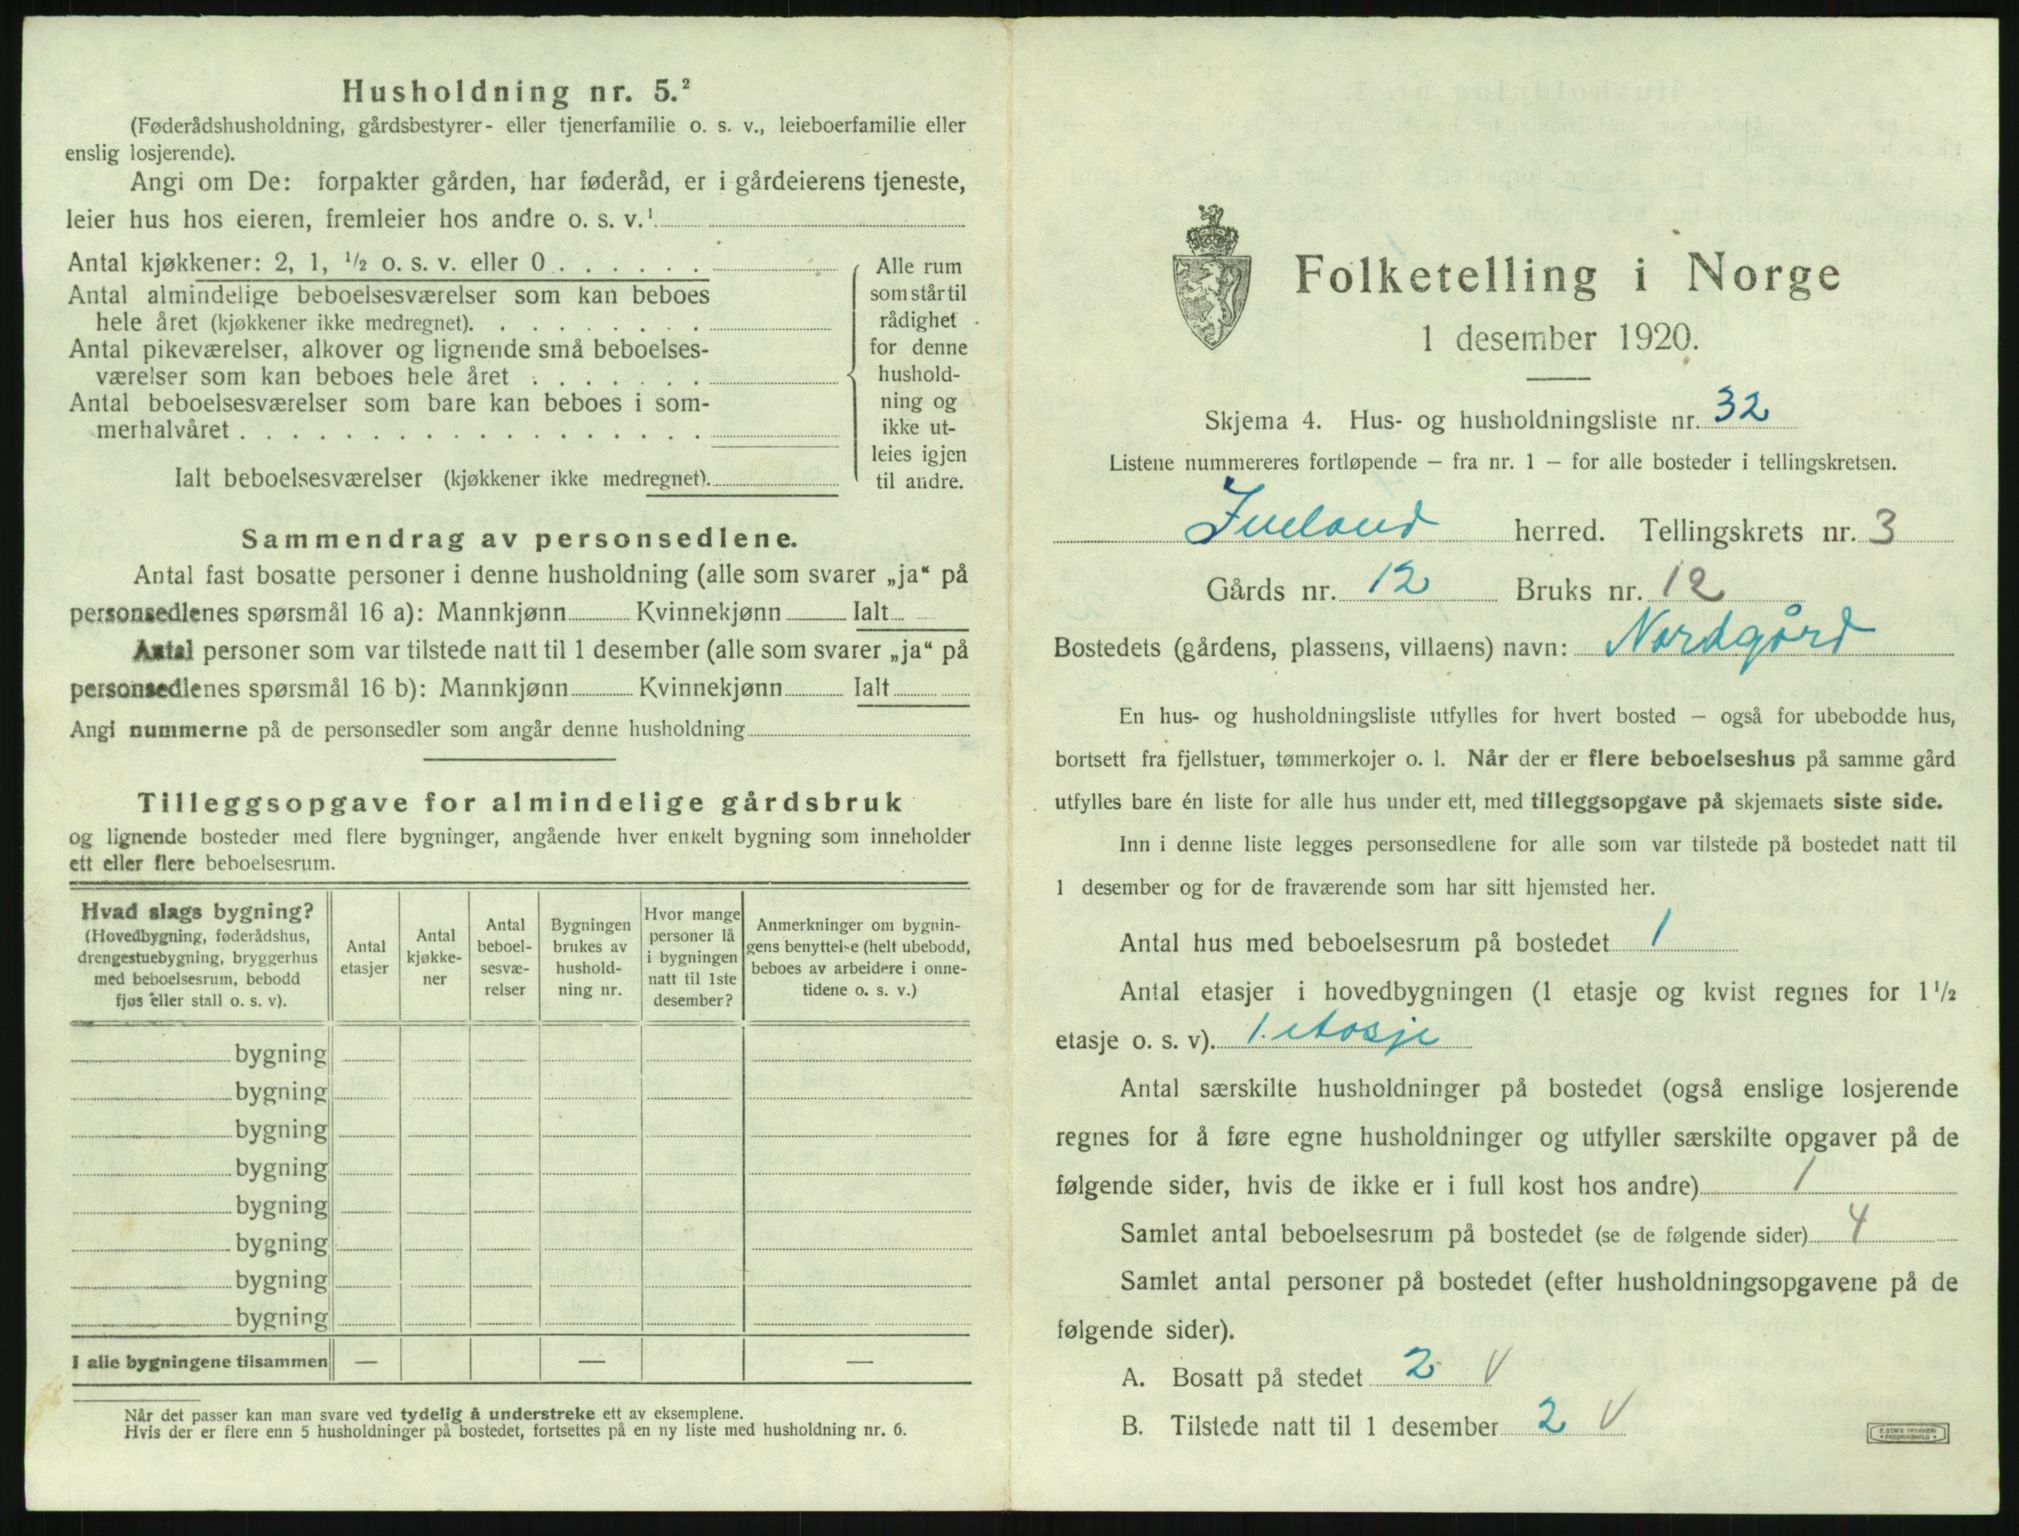 Husholdning nr. 5.²
(Føderådshusholdning, gårdsbestyrer- eller tjenerfamilie o. s. v., leieboerfamilie eller
enslig losjerende).
Angi om De: forpakter gården, har føderåd, er i gårdeierens tjeneste,
leier hus hos eieren, fremleier hos andre o. s. v.¹
Antal kjøkkener: 2, 1, ½ o. s. v. eller 0 . . . . . .
Antal almindelige beboelsesværelser som kan beboes
hele året (kjøkkener ikke medregnet). . . . . . . . .
Antal pikeværelser, alkover og lignende små beboelses-
værelser som kan beboes hele året . . . . . . .
Antal beboelsesværelser som bare kan beboes i som-
merhalvåret . . . . . . . . . . . . . . . . . .
Ialt beboelsesværelser (kjøkkener ikke medregnet).
Alle rum
som står til
rådighet
for denne
hushold-
ning og
ikke ut-
leies igjen
til andre.
Sammendrag av personsedlene.
Antal fast bosatte personer i denne husholdning (alle som svarer „ja“ på
personsedlenes spørsmål 16 a): Mannkjønn Kvinnekjønn Ialt
Antal personer som var tilstede natt til 1 desember (alle som svarer „ja“ på
personsedlenes spørsmål 16 b): Mannkjønn Kvinnekjønn Ialt
Angi nummerne på de personsedler som angår denne husholdning
Tilleggsopgave for almindelige gårdsbruk
og lignende bosteder med flere bygninger, angående hver enkelt bygning som inneholder
ett eller flere beboelsesrum.
Hvad slags bygning?
(Hovedbygning, føderådshus,
drengestuebygning, bryggerhus
med beboelsesrum, bebodd
fjøs eller stall o. s. v).
Antal
etasjer
Antal
kjøkke-
ner
Antal
beboel-
sesvæ-
relser
Bygningen
brukes av
hushold-
ning nr.
Hvor mange
personer lå
i bygningen
natt til 1ste
desember?
Anmerkninger om bygnin-
gens benyttelse (helt ubebodd,
beboes av arbeidere i onne-
tidene o. s. v.)
bygning
bygning
bygning
bygning
bygning
bygning
bygning
bygning
I alle bygningene tilsammen — — —
Når det passer kan man svare ved tydelig å understreke ett av eksemplene.
Hvis der er flere enn 5 husholdninger på bostedet, fortsettes på en ny liste med husholdning nr. 6.
Folketelling i Norge
1 desember 1920.
Skjema 4. Hus- og husholdningsliste nr. 32
Listene nummereres fortløpende – fra nr. 1 – for alle bosteder i tellingskretsen.
Iveland herred. Tellingskrets nr. 3
Gårds nr. 12 Bruks nr. 12
Bostedets (gårdens, plassens, villaens) navn: Nordgård
En hus- og husholdningsliste utfylles for hvert bosted – også for ubebodde hus,
bortsett fra fjellstuer, tømmerkojer o. l. Når der er flere beboelseshus på samme gård
utfylles bare én liste for alle hus under ett, med tilleggsopgave på skjemaets siste side.
Inn i denne liste legges personsedlene for alle som var tilstede på bostedet natt til
1 desember og for de fraværende som har sitt hjemsted her.
Antal hus med beboelsesrum på bostedet 1
Antal etasjer i hovedbygningen (1 etasje og kvist regnes for 1½
etasje o. s. v). 1. etasje
Antal særskilte husholdninger på bostedet (også enslige losjerende
regnes for å føre egne husholdninger og utfyller særskilte opgaver på de
følgende sider, hvis de ikke er i full kost hos andre) 1
Samlet antal beboelsesrum på bostedet (se de følgende sider) 4
Samlet antal personer på bostedet (efter husholdningsopgavene på de
følgende sider).
A. Bosatt på stedet 2 V
B. Tilstede natt til 1 desember 2 V